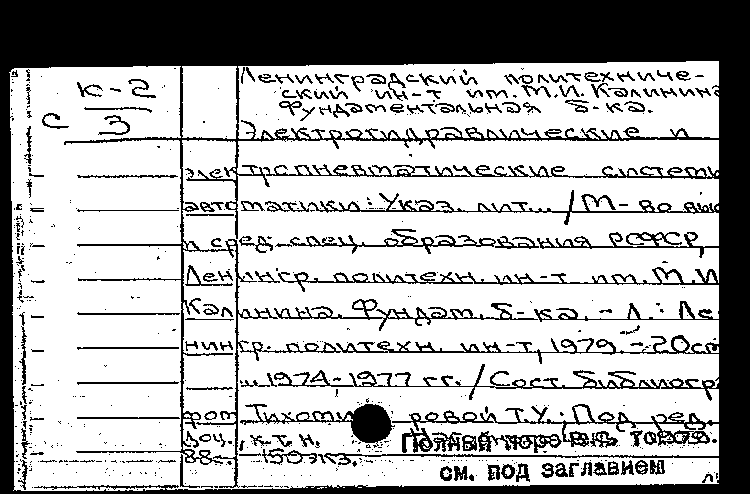 Ленинградский политехниче-
ский ин-т им. М.И. Калинина
Фундаментальная б-ка.
к-2
С 3
Электрогидравлические и
электропневматические системы
автоматики: Указ. лит... / М-во выс
и сред. спец. образования РСФСР,
Ленингр. политехн. ин-т им. М.И
Калинина. Фундам. б-ка. - Л.: Ле-
нингр. политехн. ин-т, 1979. -20см
... 1974-1977 гг. / Сост. библиогра
фом Тихомировой Т.У.; Под ред.
доц., к.т.н.
88с. 150экз.
Полный
см. под заглавием